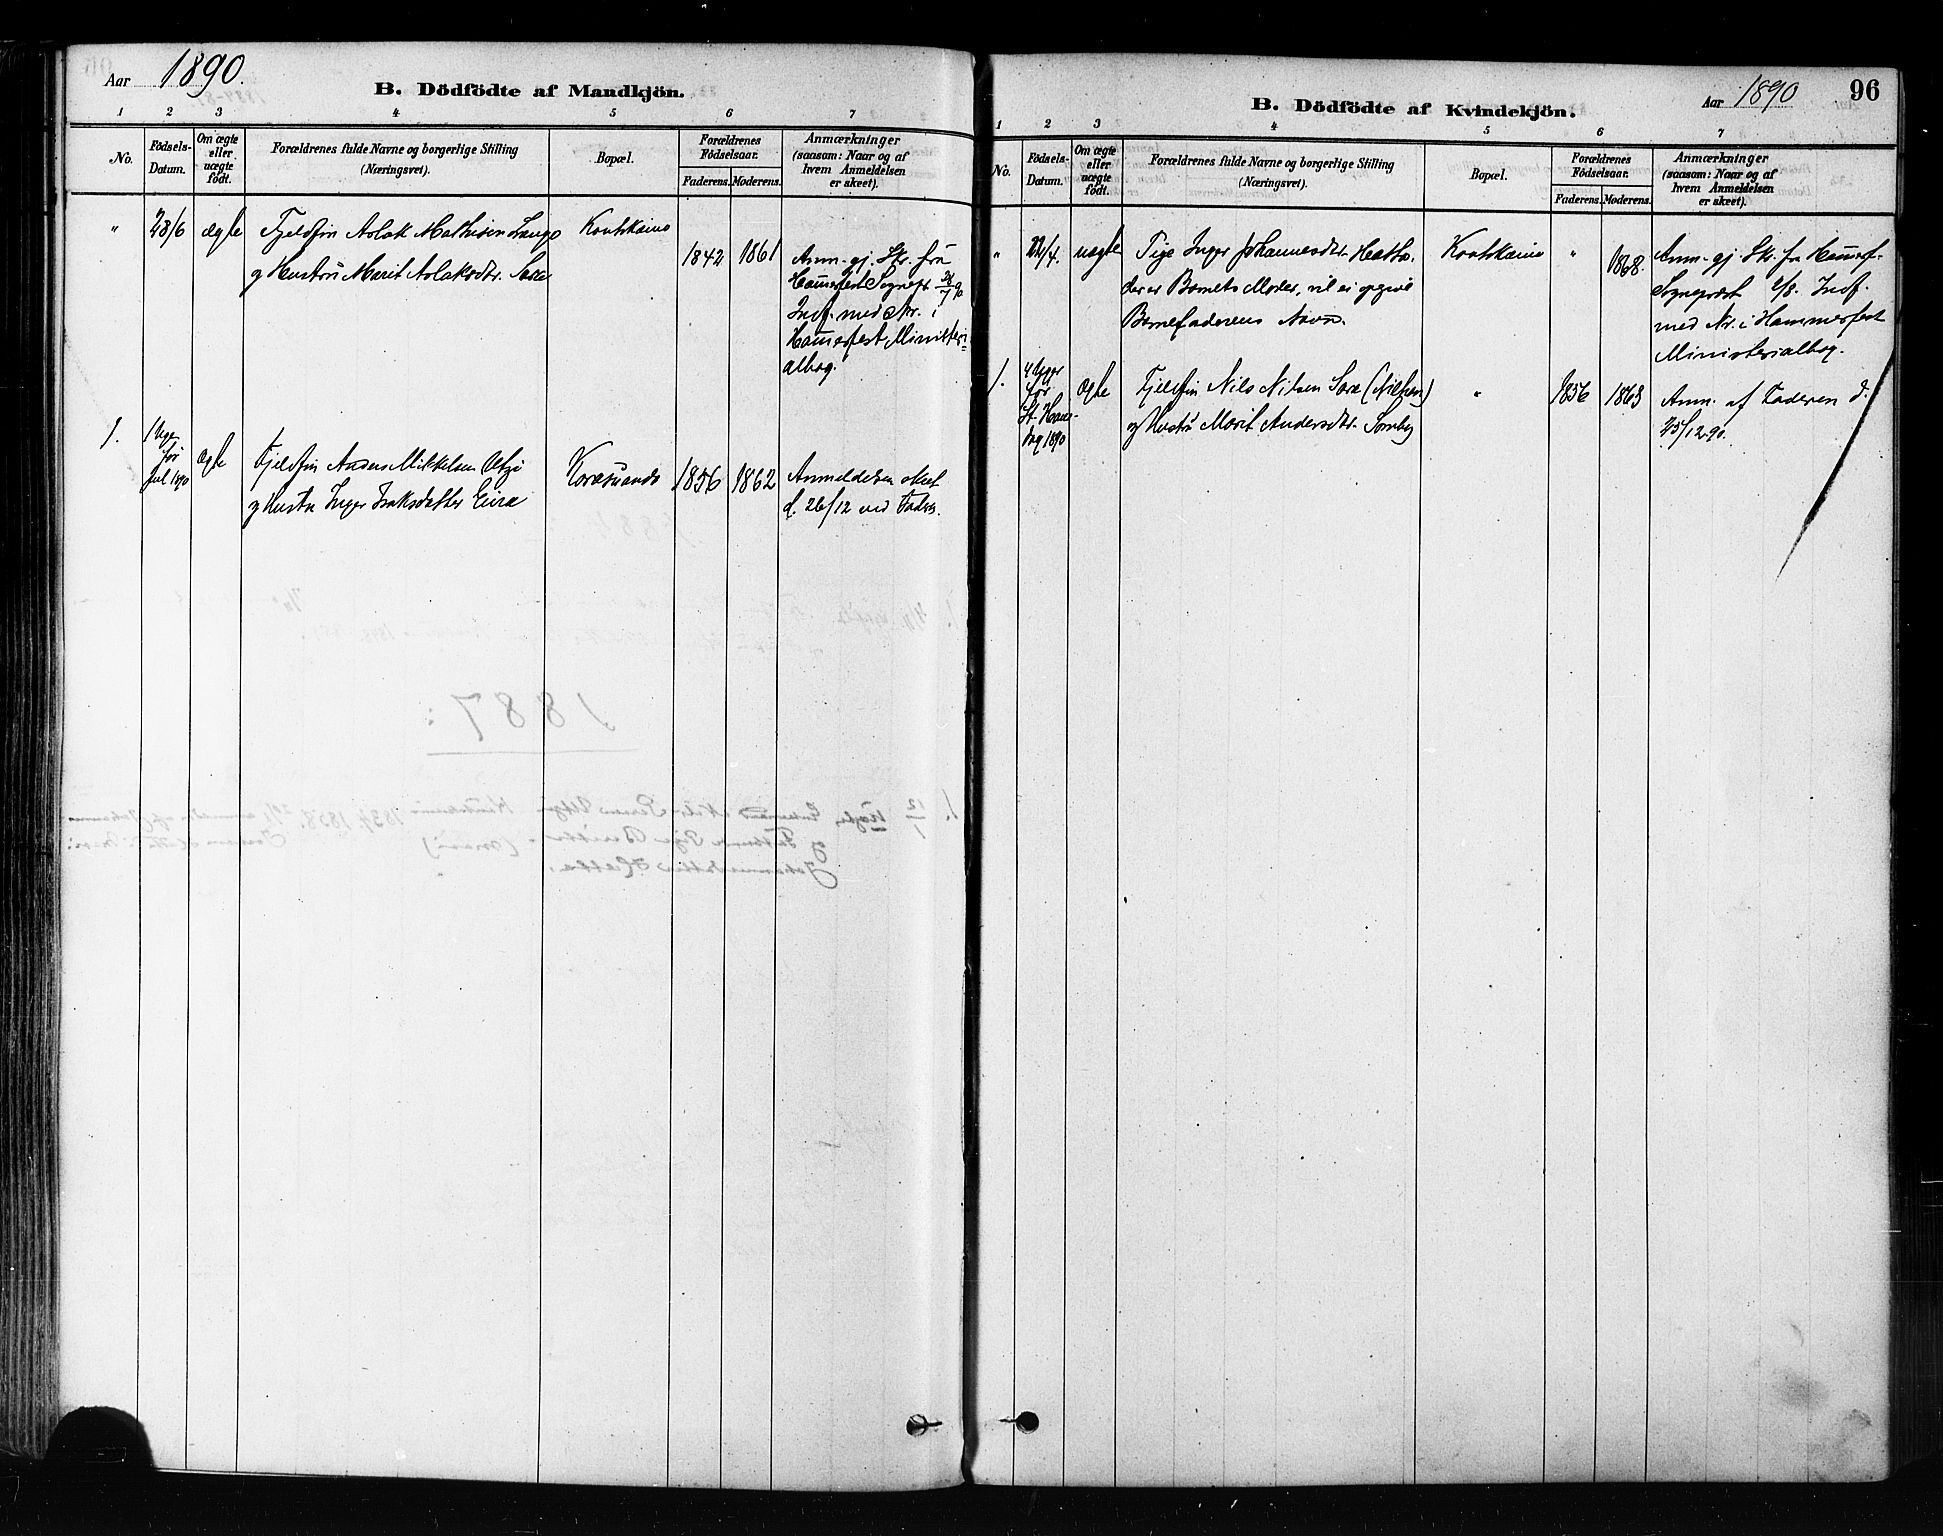 Aar 1890.
B. Dödfödte af Mandkjön.
1 2 3 4 5 6 7
No.
Födsels-
Datum.
Om ægte
eller
uægte
født.
Forældrenes fulde Navne og borgerlige Stilling
(Næringsvei).
Bopæl.
Forældrenes
Födselsaar.
Faderens. Moderens.
Anmærkninger
(saasom: Naar og af
hvem Anmeldelsen
er skeet).
" 28/6 ægte Fjeldfin Aslak Mathisen Kautokeino
g Hustru Marit Aslaksdtr. Sara 1842 1861
Anm. gj. Skr. fra
Hamerfest Sognepr. 28/7 90
Indf. med Nr. i
Hamerfest Ministeri-
albog.
1. 1 Uge
før
Jul 1890
ægte Fjeldfin Anders Mikkelsen Utzi
g Hustru Inger Isaksdatter Eira
Karesuando 1856 1862
Anmeldelsen skeet
d. 26/12 ved Faderen.
B. Dödfödte af Kvindekjön.
Aar 1890 96
1 2 3 4 5 6 7
No.
Födsels-
Datum.
Om ægte
eller
uægte
født.
Forældrenes fulde Navne og borgerlige Stilling
(Næringsvei).
Bopæl.
Forældrenes
Födselsaar.
Faderens. Moderens.
Anmærkninger
(saasom: Naar og af
hvem Anmeldelsen
er skeet).
" 21/4. uægte Pige Inger Johannesdtr. Hætta. Kautokeino " 1868.
der er Barnets Moder, vil ei opgive
Barnefaderens Navn.
Anm. gj. Skr. fra Hamerf.
Sognepræst 2/8. Indf.
med Nr. i Hammerfest
Ministerialbog.
1. 4 Uger
før
St. Hans-
dag 1890
ægte Fjeldfin Nils Nilsen Sara (Nielsen) " 1856 1863
g Hustru Marit Andersdtr. Somby
Anm. af Faderen d.
25/12 90.
1887: